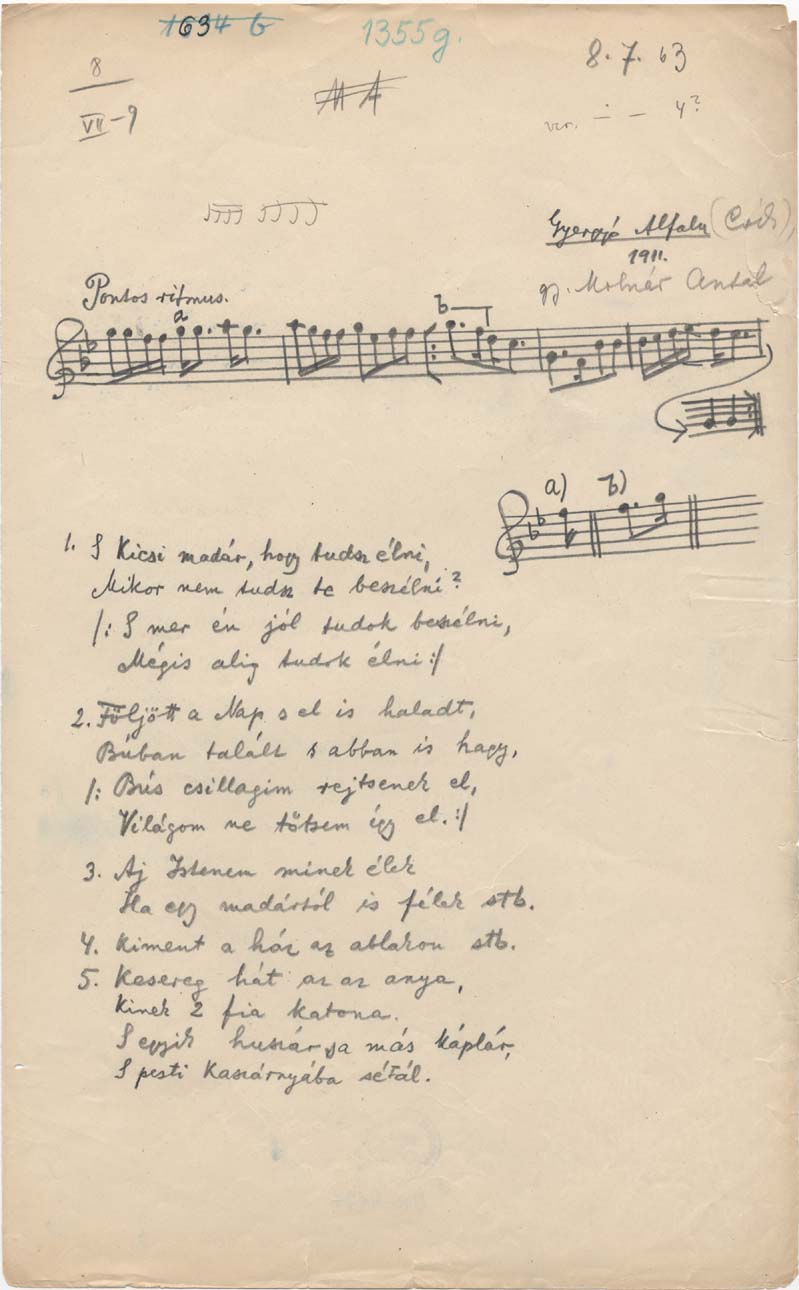 1634 b
1355 g.
8. 7. 63
8
VII-9
MA
var. 4?
Gyergyó Alfalu (Csík),
1911.
gy. Molnár Antal
Pontos ritmus.
a
b
a) b)
1. S Kicsi madár, hogy tudsz élni,
Mikor nem tudsz te beszélni?
/: S mer én jól tudok beszélni,
Mégis alig tudok élni :/
2. Följött a Nap s el is haladt,
Búban talált s abban is hagy,
/: Bús csillagim rejtsenek el,
Világom ne tőtsem így el. :/
3. Aj Istenem minek élek
Ha egy madártól is félek stb.
4. Kiment a ház az ablakon stb.
5. Kesereg hát az az anya,
Kinek 2 fia katona.
S egyik huszár sa más káplár,
S pesti Kaszárnyába sétál.